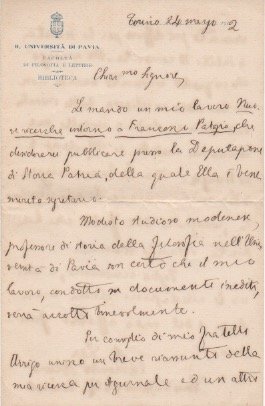 R. UNIVERSITÀ DI PAVIA
FACOLTÀ
DI FILOSOFIA E LETTERE
BIBLIOTECA
Torino 24 marzo 2
Chiar mo Signore,
Le mando un mio lavoro Nuo-
ve ricerche intorno a Francesco Patrizio, che
desidererei pubblicare presso la Deputazione
di Storia Patria, della quale Ella è bene
merito segretario.
Modesto studioso modenese,
professore di storia della filosofia nell'Uni
versità di Pavia son certo che il mio
lavoro, condotto su documenti inediti,
verrà accolto favorevolmente.
Per consiglio di mio fratello
Arrigo unisco un breve riassunto della
mia ricerca per il giornale ed un altro